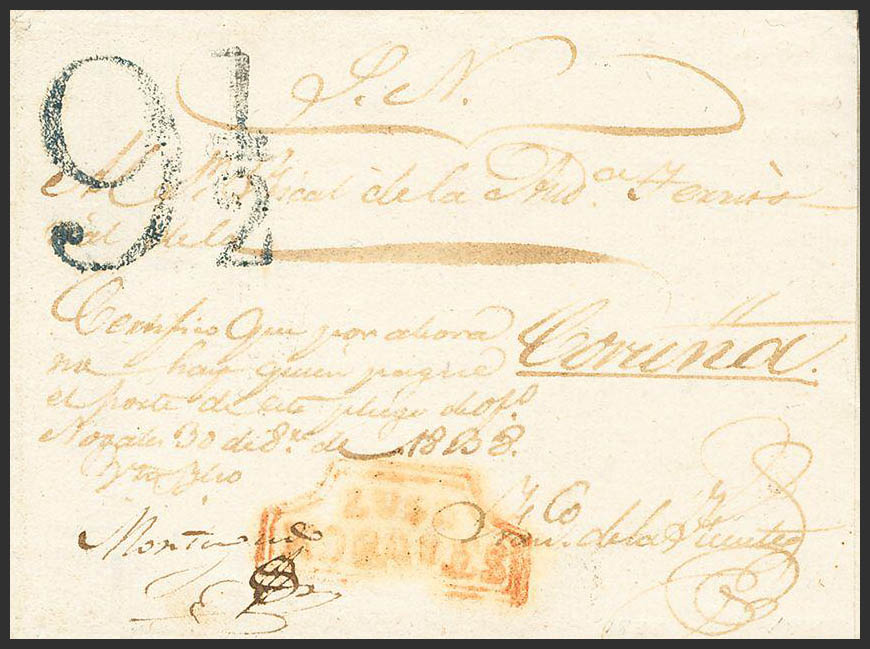 9 1/2
S. N.
Al S.r Fiscal de la Aud.cia Territo-
rial de la
Coruña.
Certifico que por ahora
no hay quien pague
el porte de este pliego de of.o
Nogales 30 de 8.re de 1838.
Montenegro
Fran.co de la Fuente